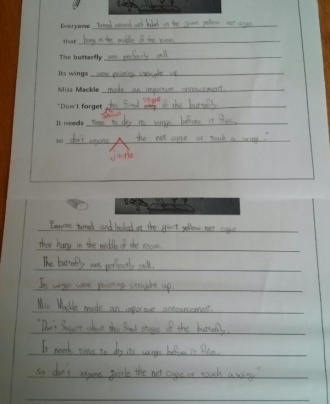 Everyone turned around and looked at the giant yellow net cage
that hung in the middle of the room.
The butterfly was perfectly still.
Its wings were pointing straight up.
Miss Mackle made an important announcement.
"Don't forget this final stage of the butterfly.
It needs time to dry its wings before it flies,
so don't anyone the net cage or touch a wing."
jiggle
Everyone turned and looked at the giant yellow net cage
that hung in the middle of the room.
The butterfly was perfectly still.
Its wings were pointing straight up.
Miss Mackle made an important announcement.
"Don't forget about this final stage of the butterfly.
It needs time to dry its wings before it flies.
so don't anyone jiggle the net cage or touch a wing."